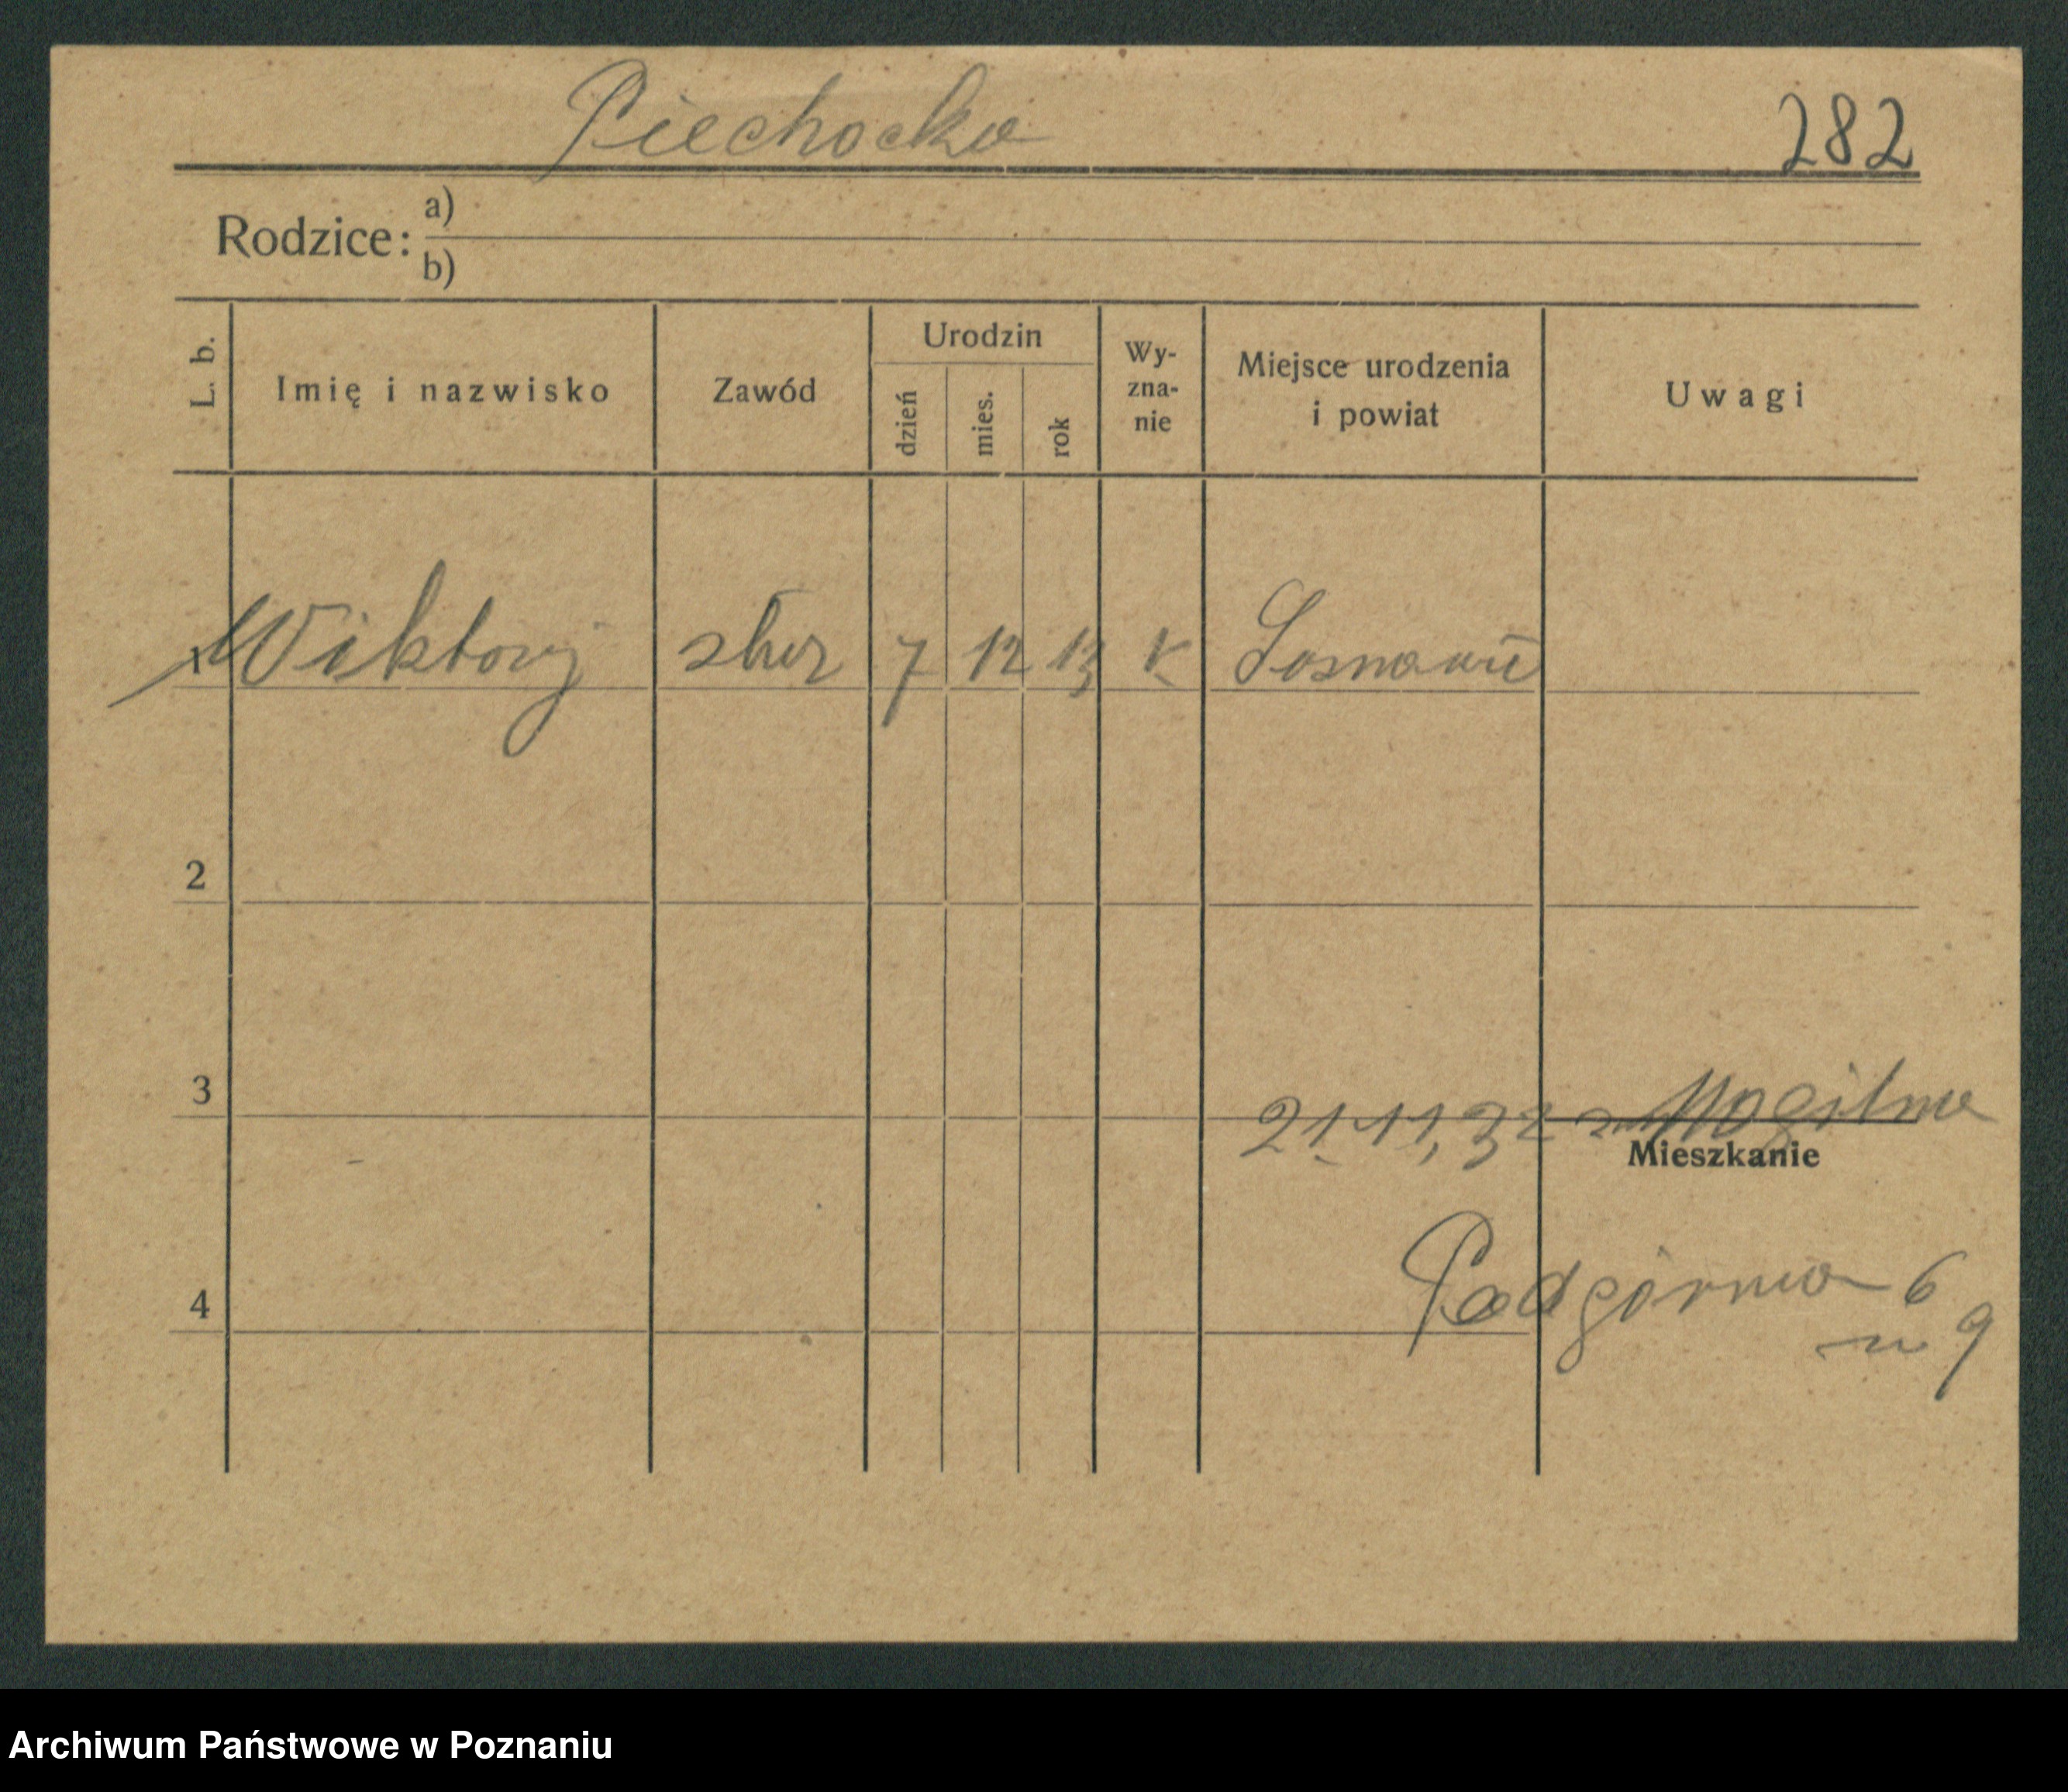 Piechocka 282
Rodzice: a)
b)
L. b. Imię i nazwisko Zawód Urodzin dzień mies. rok Wy-zna-nie Miejsce urodzenia i powiat Uwagi
1 Wiktorj 7 12 13 K
2
3
21.11.32 z Mogilna
Mieszkanie
4
Podgórna 6
m 9
Archiwum Państwowe w Poznaniu